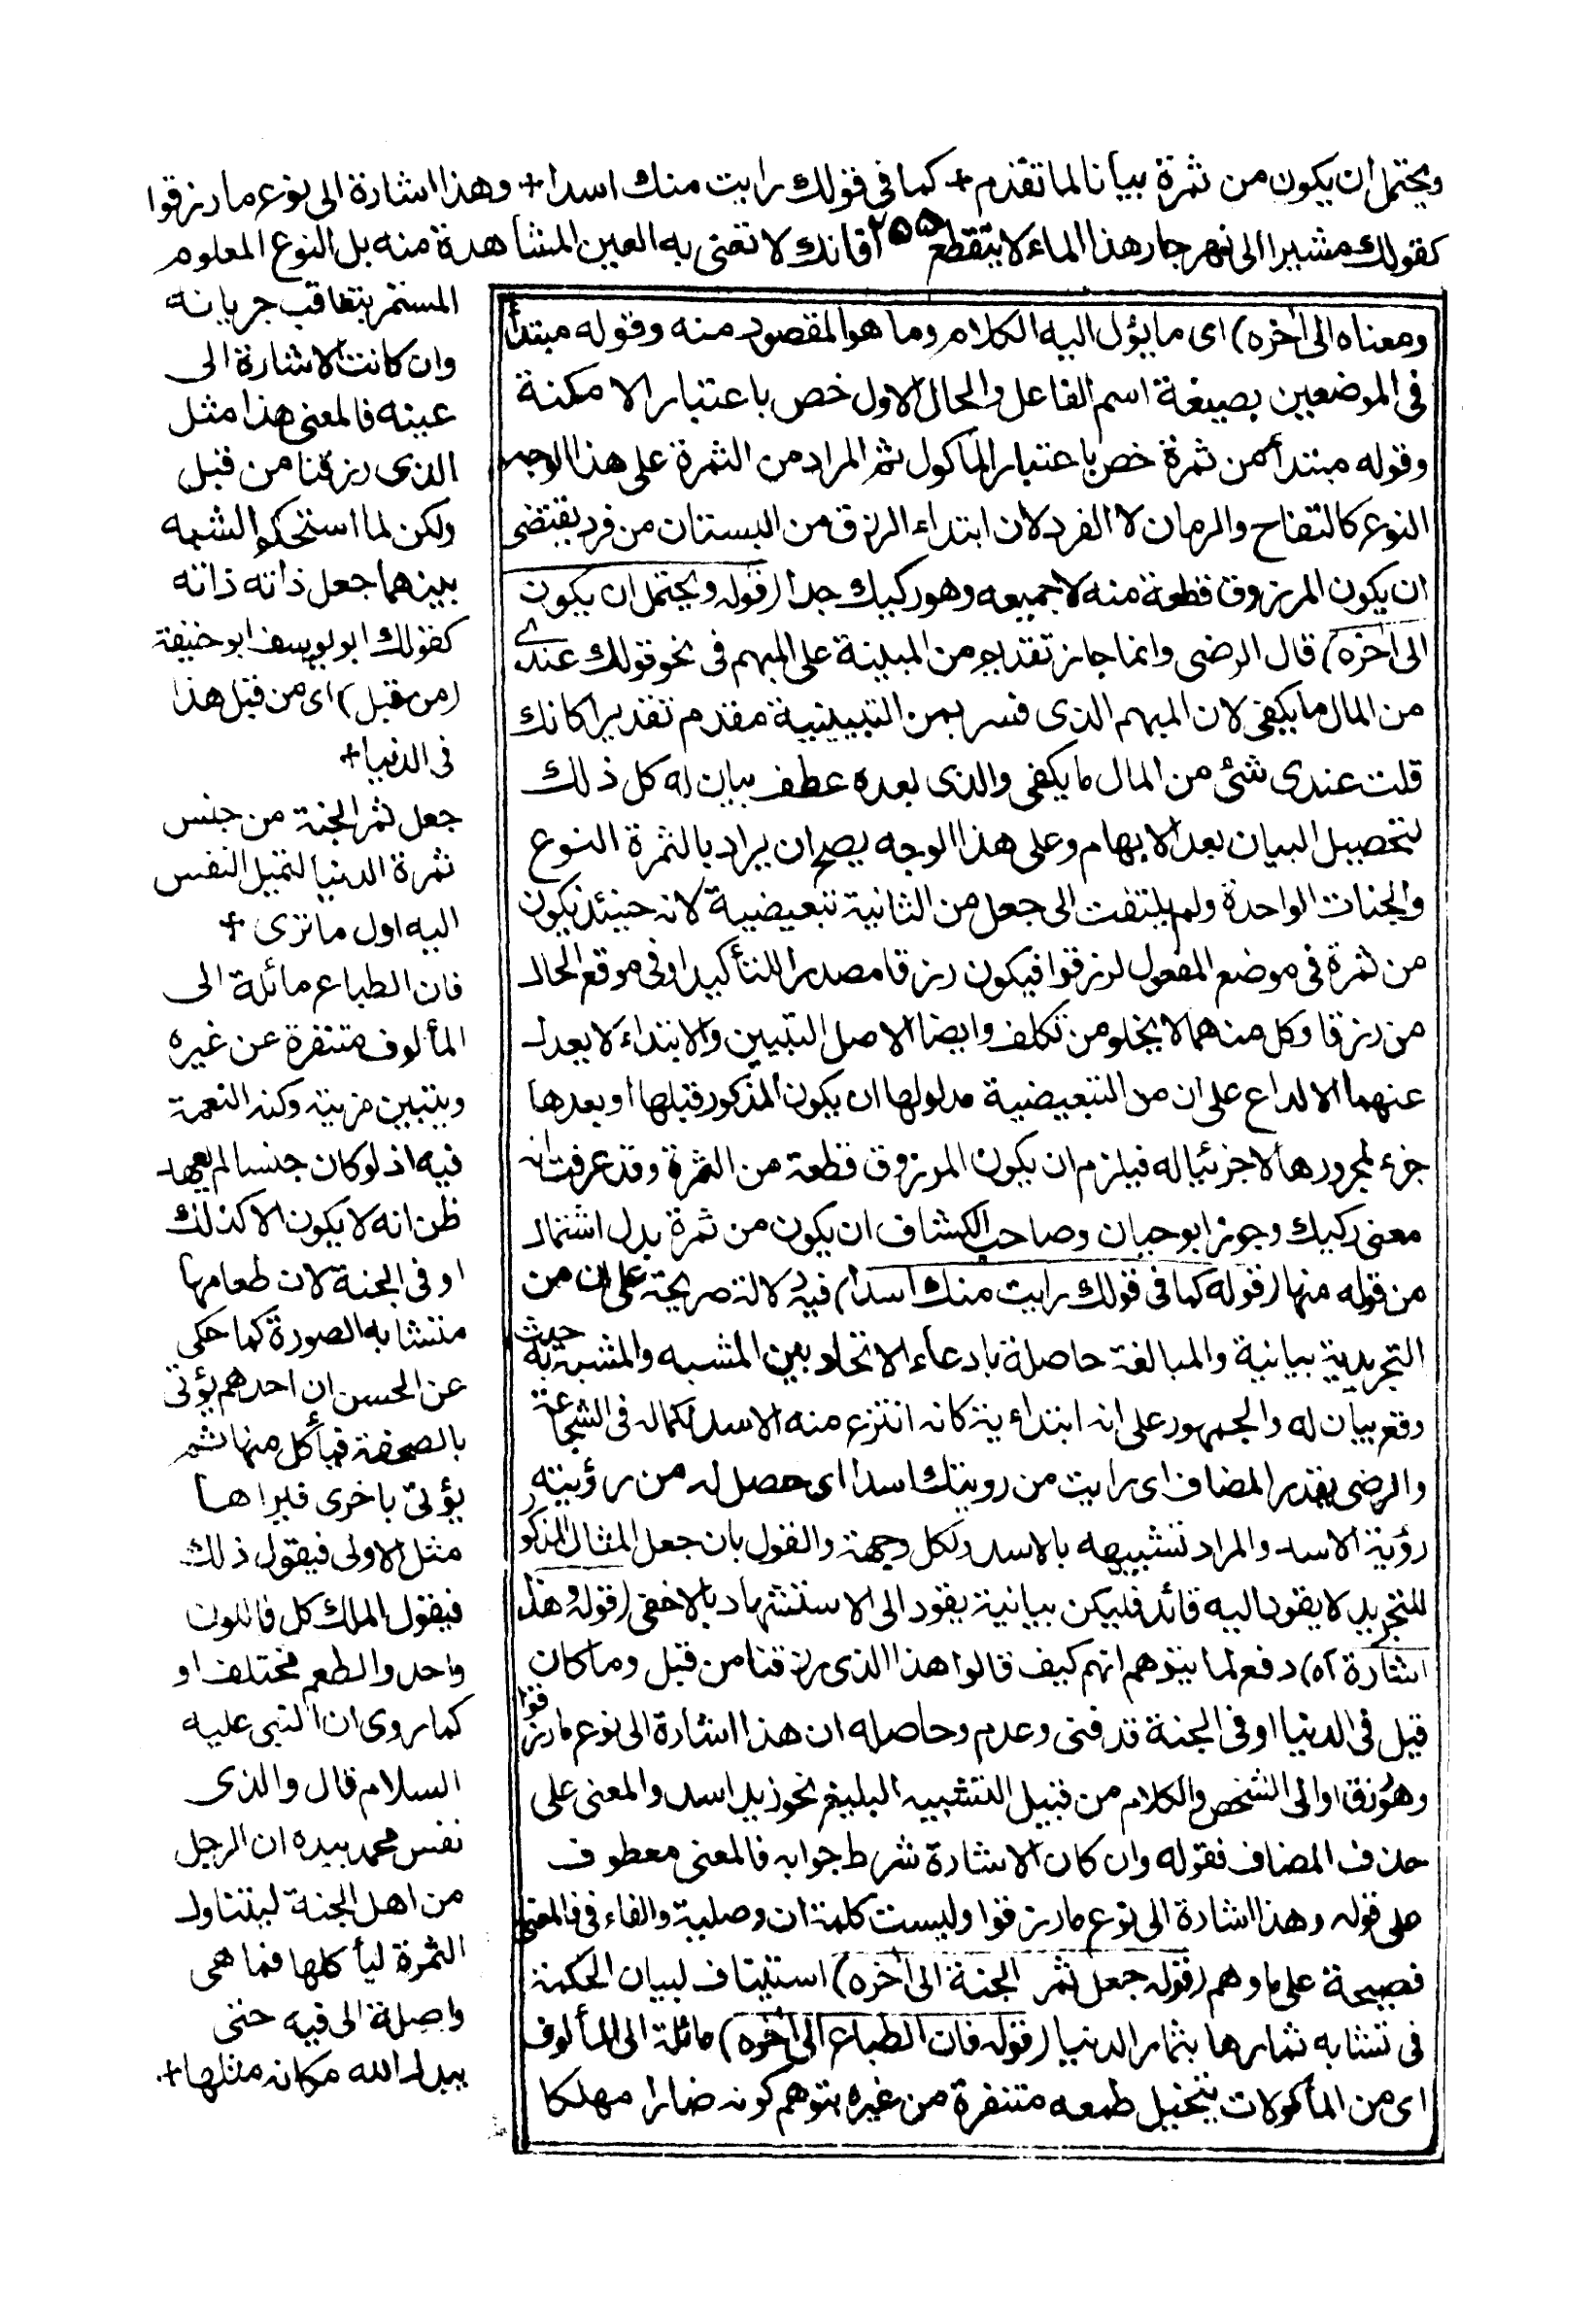 ويحتمل ان يكون من ثمرة بيانا لما تقدم + كما في قولك رايت منك اسدا + وهذا اشارة الى نوع ما رزقوا
كقولك مشيرا الى نهر جار هذا الماء لا ينقطع ٢٥٥ فانك لا تعنى به العين المشاهدة منه بل النوع المعلوم
المستمر بتعاقب جريانه
وان كانت الاشارة الى
عينه فالمعنى هذا مثل
الذى رزقنا من قبل
ولكن لما استحكم الشبه
بينهما جعل ذاته ذاته
كقولك ابو يوسف ابو حنيفة
(من قبل) اى من قبل هذا
فى الدنيا +
جعل ثمر الجنة من جنس
ثمرة الدنيا لتميل النفس
اليه اول ما ترى +
فان الطباع مائلة الى
المألوف متنفرة عن غيره
ويتبين مزيته وكنه النعمة
فيه اذ لو كان جنسا لم يعهد
ظن انه لا يكون الا كذلك
او فى الجنة لان طعامها
متشابه الصورة كما حكى
عن الحسن ان احدهم يؤتى
بالصحفة فيأكل منها ثم
يؤتى باخرى فيراها
مثل الاولى فيقول ذلك
فيقول الملك كل فاللون
واحد والطعم مختلف او
كما روى ان النبى عليه
السلام قال والذى
نفس محمد بيده ان الرجل
من اهل الجنة ليتناول
الثمرة ليأكلها فما هى
واصلة الى فيه حتى
يبدل الله مكانه مثلها +
ومعناه الى اخره) اى ما يؤل اليه الكلام وما هو المقصود منه وقوله مبتدأ
فى الموضعين بصيغة اسم الفاعل والحال الاول خص باعتبار الامكنة
وقوله مبتدأ من ثمرة خص باعتبار المأكول ثم المراد من الثمرة على هذا الوجه
النوع كالتفاح والرمان لا الفرد لان ابتداء الرزق من البستان من فرد يقتضى
ان يكون المرزوق قطعة منه لا جميعه وهو ركيك جدا (قوله ويحتمل ان يكون
الى اخره) قال الرضى وانما جاز تقديم من المبينة على المبهم فى نحو قولك عندى
من المال ما يكفى لان المبهم الذى فسر بمن التبيينية مقدم تقديرا كانك
قلت عندى شئ من المال ما يكفى والذى بعده عطف بيان له كل ذلك
لتحصيل البيان بعد الابهام وعلى هذا الوجه يصح ان يراد بالثمرة النوع
والجنات الواحدة ولم يلتفت الى جعل من الثانية تبعيضية لانه حينئذ يكون
من ثمرة فى موضع المفعول لرزقوا فيكون رزقا مصدرا للتأكيد او فى موقع الحال
من رزقا وكل منهما لا يخلو من تكلف وايضا الاصل التبيين والابتداء لا يعدل
عنهما الا لداع على ان من التبعيضية مدلولها ان يكون المذكور قبلها او بعدها
جزء لمجرورها لا جزئيا له فيلزم ان يكون المرزوق قطعة من الثمرة وقد عرفت انه
معنى ركيك وجوز ابو حيان وصاحب الكشاف ان يكون من ثمرة بدل اشتمال
من قوله منها (قوله كما فى قولك رايت منك اسدا) فيه دلالة صريحة على ان من
التجريدية بيانية والمبالغة حاصلة بادعاء الاتحاد بين المشبه والمشبه به حيث
وقع بيان له والجمهور على انه ابتدائية كانه انتزع منه الاسد لكماله فى الشجاعة
والرضى يقدر المضاف اى رايت من رويتك اسدا اى حصل له من رؤيته
رؤية الاسد والمراد تشبيهه بالاسد ولكل وجهة والقول بان جعل المثال المذكور
للتجريد لا يقود اليه قائد فليكن بيانية يقود الى الاستشهاد بالاخفى (قوله وهذا
اشارة اه) دفع لما يتوهم انهم كيف قالوا هذا الذى رزقنا من قبل وما كان
قبل فى الدنيا او فى الجنة قد فنى وعدم وحاصله ان هذا اشارة الى نوع ما رزقوا
او الى الشخص والكلام من قبيل التشبيه البليغ نحو زيد اسد والمعنى على
حذف المضاف فقوله وان كان الاشارة شرط جوابه فالمعنى معطوف
على قوله وهذا اشارة الى نوع ما رزقوا وليست كلمة ان وصلية والفاء فى فالمعنى
فصيحة على ما وهم (قوله جعل ثمر الجنة الى اخره) استيناف لبيان الحكمة
فى تشابه ثمارها بثمار الدنيا (قوله فان الطباع الى اخره) مائلة الى المألوف
اى من المأكولات بتخيل طمعه متنفرة من غيره بتوهم كونه ضارا مهلكا